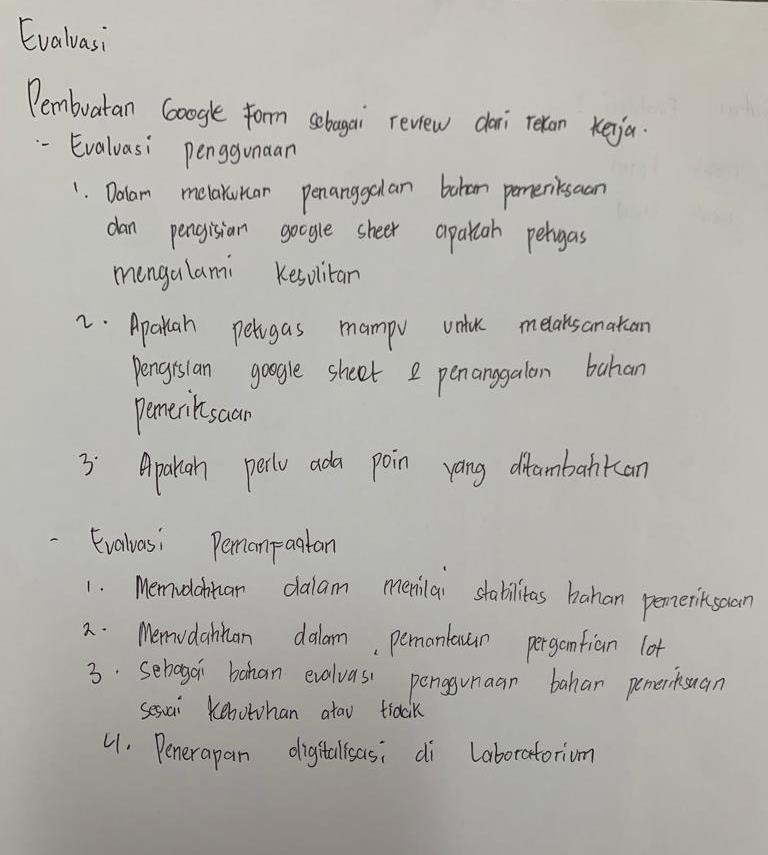 Evaluasi
Pembuatan Google Form sebagai review dari rekan kerja.
- Evaluasi penggunaan
1. Dalam melakukan penanggalan bahan pemeriksaan
dan pengisian google sheet apakah petugas
mengalami kesulitan
2. Apakah petugas mampu untuk melaksanakan
pengisian google sheet & penanggalan bahan
pemeriksaan
3. Apakah perlu ada poin yang ditambahkan
- Evaluasi Pemanfaatan
1. Memudahkan dalam menilai stabilitas bahan pemeriksaan
2. Memudahkan dalam pemantauan pergantian lot
3. sebagai bahan evaluasi penggunaan bahan pemeriksaan
sesuai kebutuhan atau tidak
4. Penerapan digitalisasi di Laboratorium